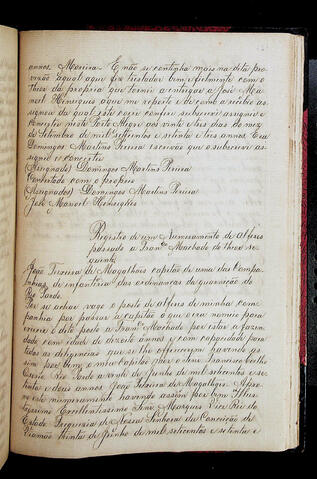 annos Moreira. E não se continha mais na dita pro
vizão a qual aqui fiz tresladar bem e fielmente com o
theor da propria que tornei a entregar a José Ma
noel Henriques que me reporto e de como a recebio as
signou da qual este copiei conferi subscrevi assignei e
concertei neste Porto Alegre aos vinte e tres dias do mez
de Setembro de mil setecentos e setenta e tres annos. Eu
Domingos Martins Pereira escrivão que o subscrevi as
signei e concertei
(Assignado) Domingos Martins Pereira
Consertado com o proprio
(Assignados) Domingos Martins Pereira
José Manoel Henriques
Registro de um Numeramento de alferes
passado a Franco Machado do theor se
guinte
João Teixeira de Magalhães capitão de uma das Compa
nhias de infantaria das ordenanças da guarnição do
Rio Pardo.
Por se achar vago o posto de alferes de minha com
panhia por passar a capitão o que o era nomeio para
exercer o dito posto a Franco Machado por estar a
dade com idade de desoito annos e com capacidade para
todas as diligencias que se lhe offerecem havendo as
sim por bem o meu Capitão mór Francisco
Rio Pardo a vinte de Junho de mil setecentos e se
tenta e dous annos João Teixeira de Magalhães. Apro
vo este numeramento havendo assim por bem Illus
trissimo Excellentissimo Snr. Marquez Vice Rei do
Estado Freguesia de Nossa Senhora da Conceição de
Viamão trinta de Junho de mil setecentos e setenta e